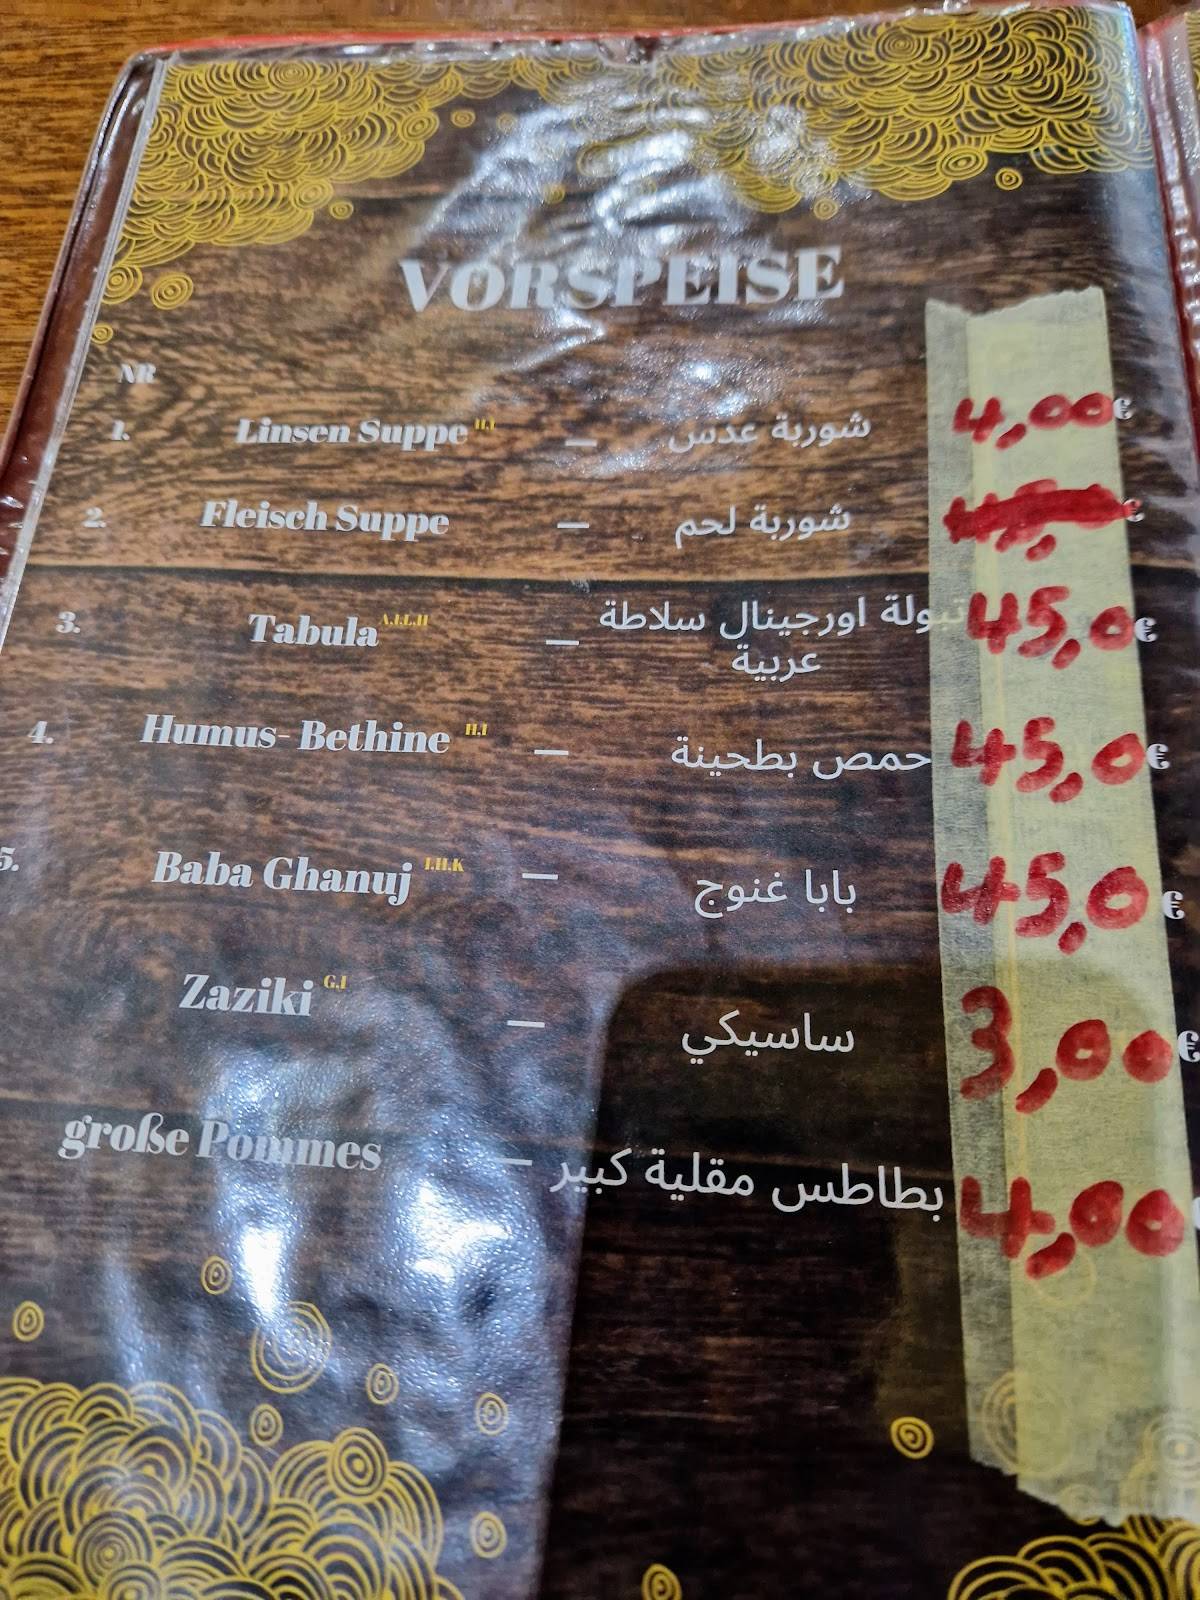 VORSPEISE
NR
1. Linsen Suppe H,I — شوربة عدس 4,00€
2. Fleisch Suppe — شوربة لحم €
3. Tabula A,J,L,H — تبولة اورجينال سلاطة 45,0€
عربية
4. Humus- Bethine H,I — حمص بطحينة 45,0€
5. Baba Ghanuj I,H,K — بابا غنوج 45,0€
Zaziki G,I — ساسيكي 3,00€
große Pommes — بطاطس مقلية كبير 4,00